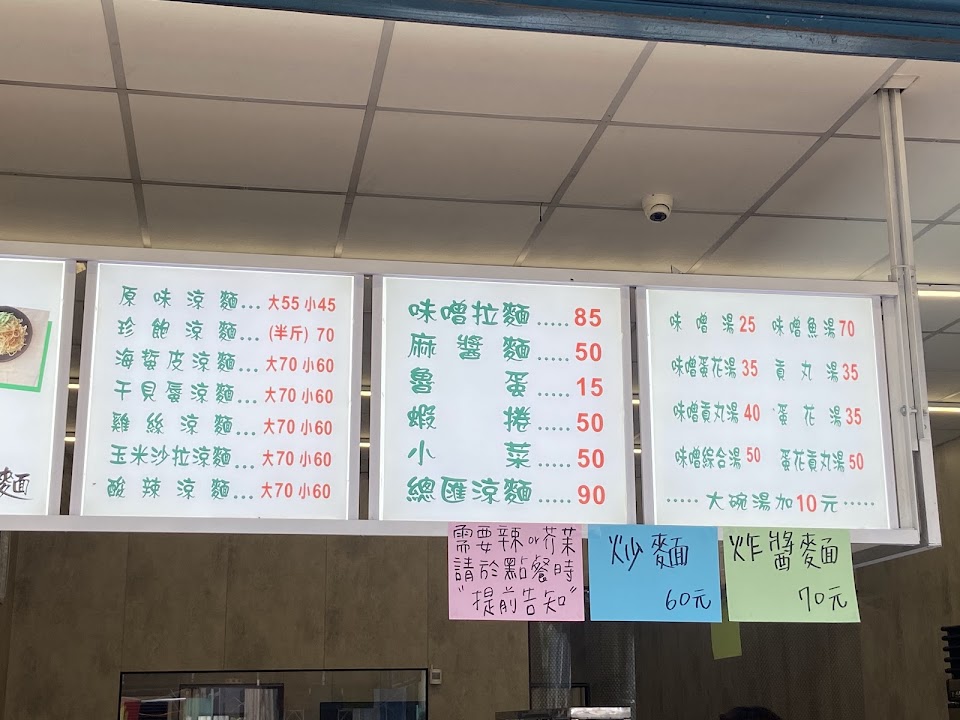 麵
原味涼麵...大55 小45
珍飽涼麵...(半斤) 70
海蜇皮涼麵...大70 小60
干貝唇涼麵...大70 小60
雞絲涼麵...大70 小60
玉米沙拉涼麵...大70 小60
酸辣涼麵...大70 小60
味噌拉麵.....85
麻醬麵.....50
魯蛋.....15
蝦捲.....50
小菜.....50
總匯涼麵.....90
味噌湯25 味噌魚湯70
味噌蛋花湯35 貢丸湯35
味噌貢丸湯40 蛋花湯35
味噌綜合湯50 蛋花貢丸湯50
······大碗湯加10元······
需要辣or芥茉
請於點餐時
"提前告知"
炒麵
60元
炸醬麵
70元